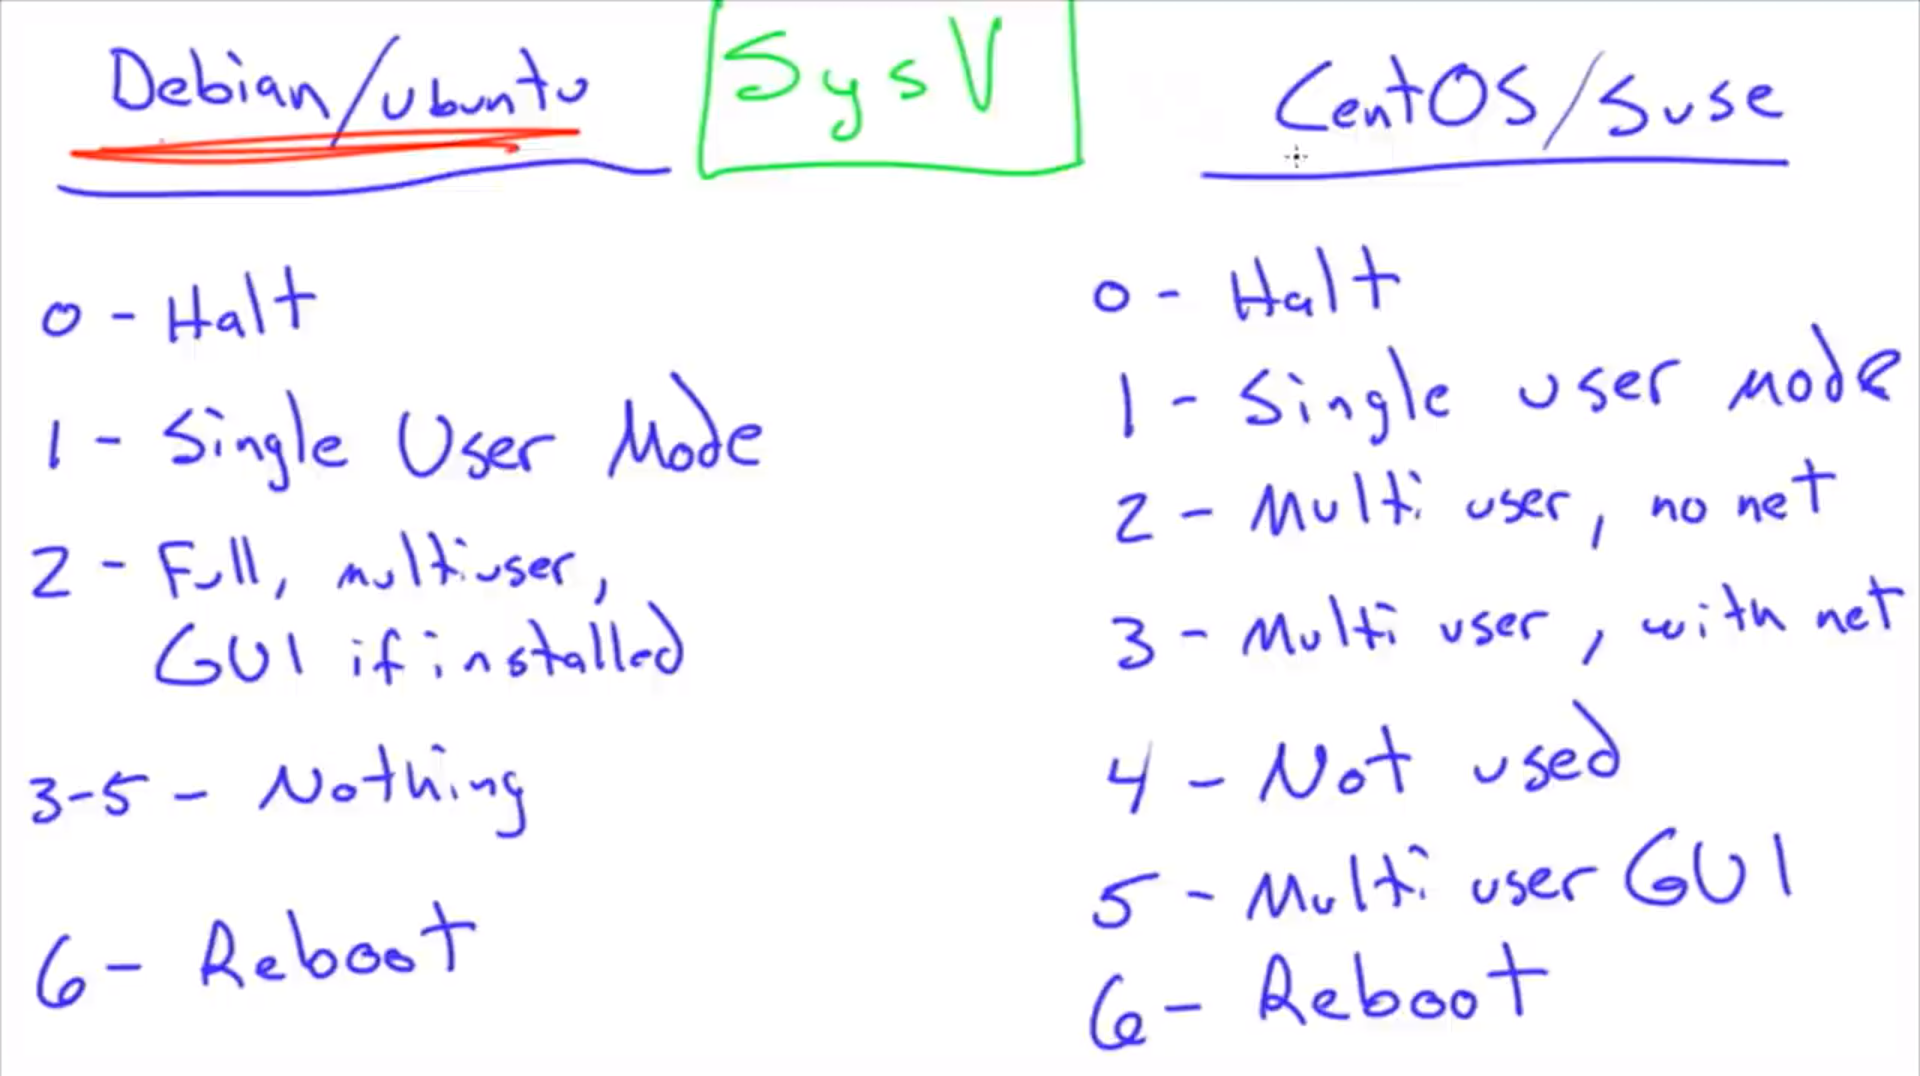 Debian/Ubuntu
SysV
CentOS/Suse
0 - Halt
1 - Single User Mode
2 - Full, multiuser,
GUI if installed
3-5 - Nothing
6 - Reboot
0 - Halt
1 - Single user mode
2 - Multi user, no net
3 - Multi user, with net
4 - Not used
5 - Multi user GUI
6 - Reboot